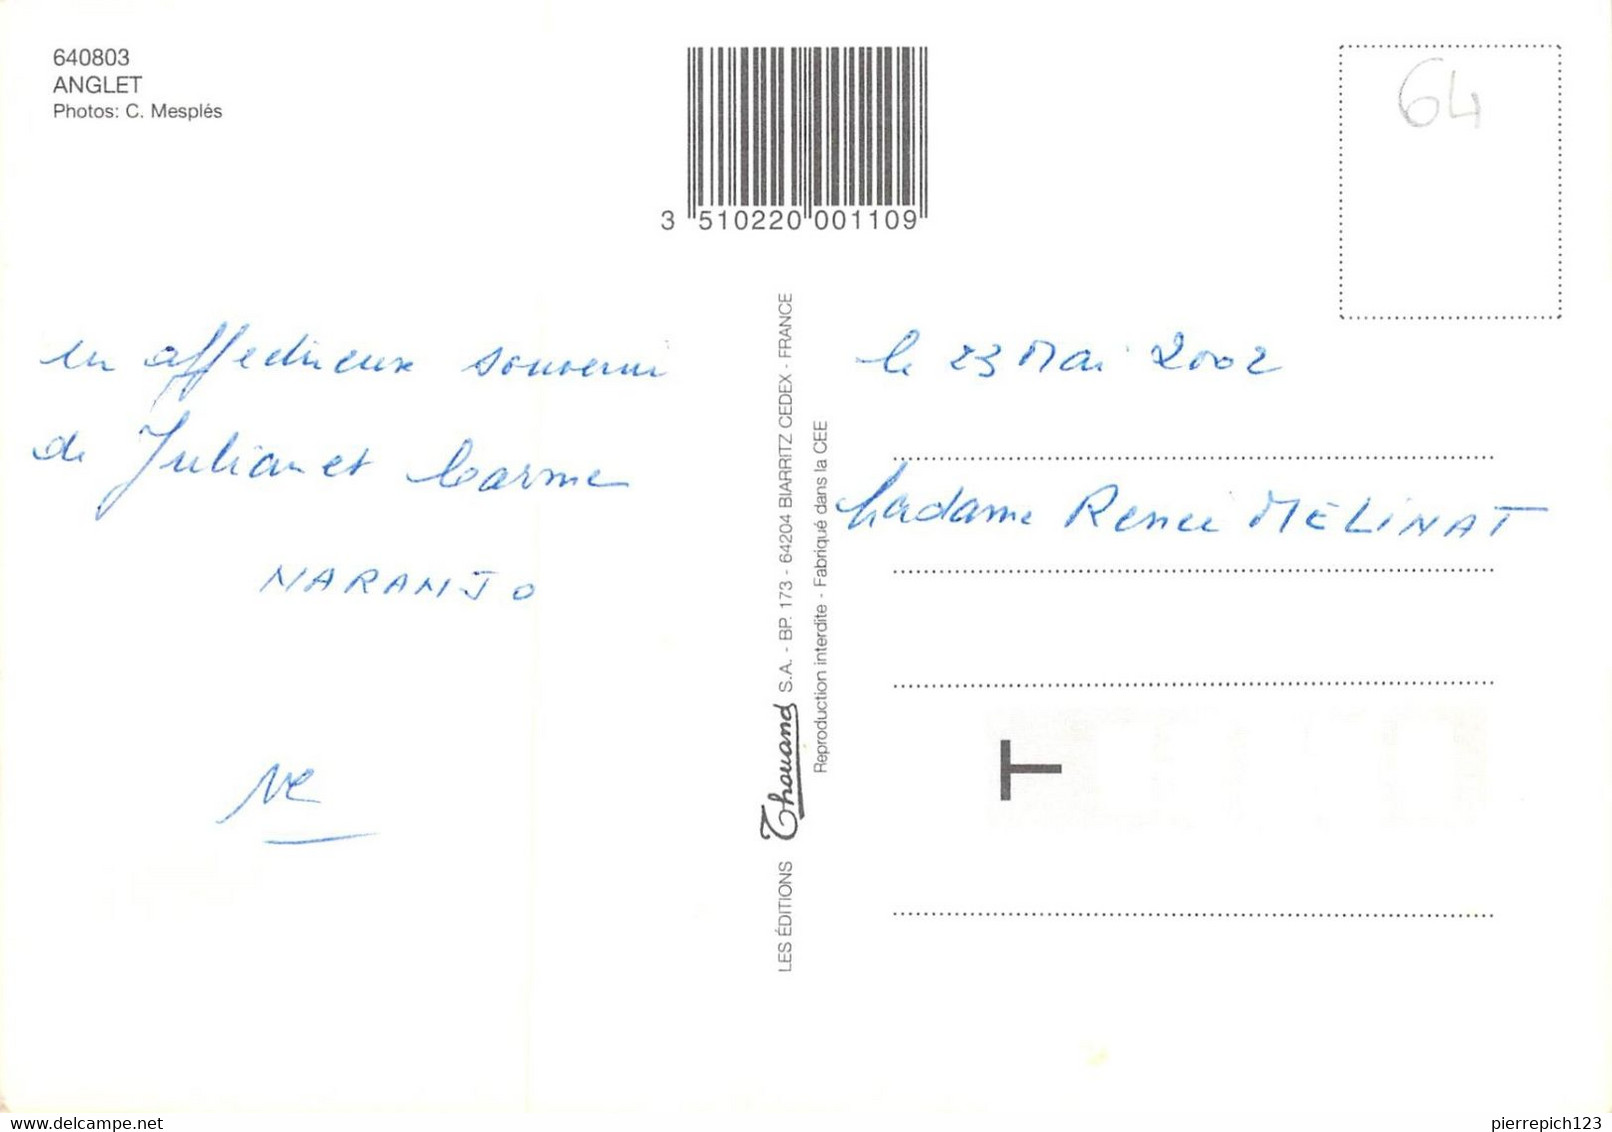 640803
ANGLET
Photos: C. Mesplés
3 510220 001109
64
en affectueux souvenir
de Julian et Carmen
NARANJO
LES ÉDITIONS Thouand S.A. - BP. 173 - 64204 BIARRITZ CEDEX - FRANCE
Reproduction interdite - Fabriqué dans la CEE
le 23 Mai 2002
Madame Renée MELINAT
T
delcampe.net
pierrepich123